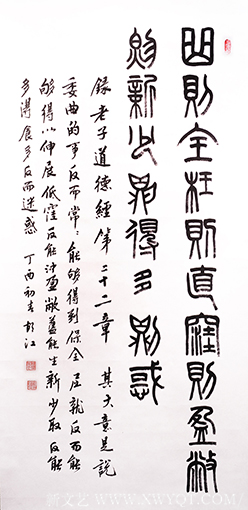 曲則全枉則直窪則盈敝
則新少則得多則惑
錄老子道德經第二十二章 其大意是說
委曲的事反而常常能够得到保全屈就反而能
够得以伸展低窪反能充盈敝舊能生新少取反能
多得貪多反而迷惑 丁酉初春彭江
新文艺 WWW.XWYQT.COM